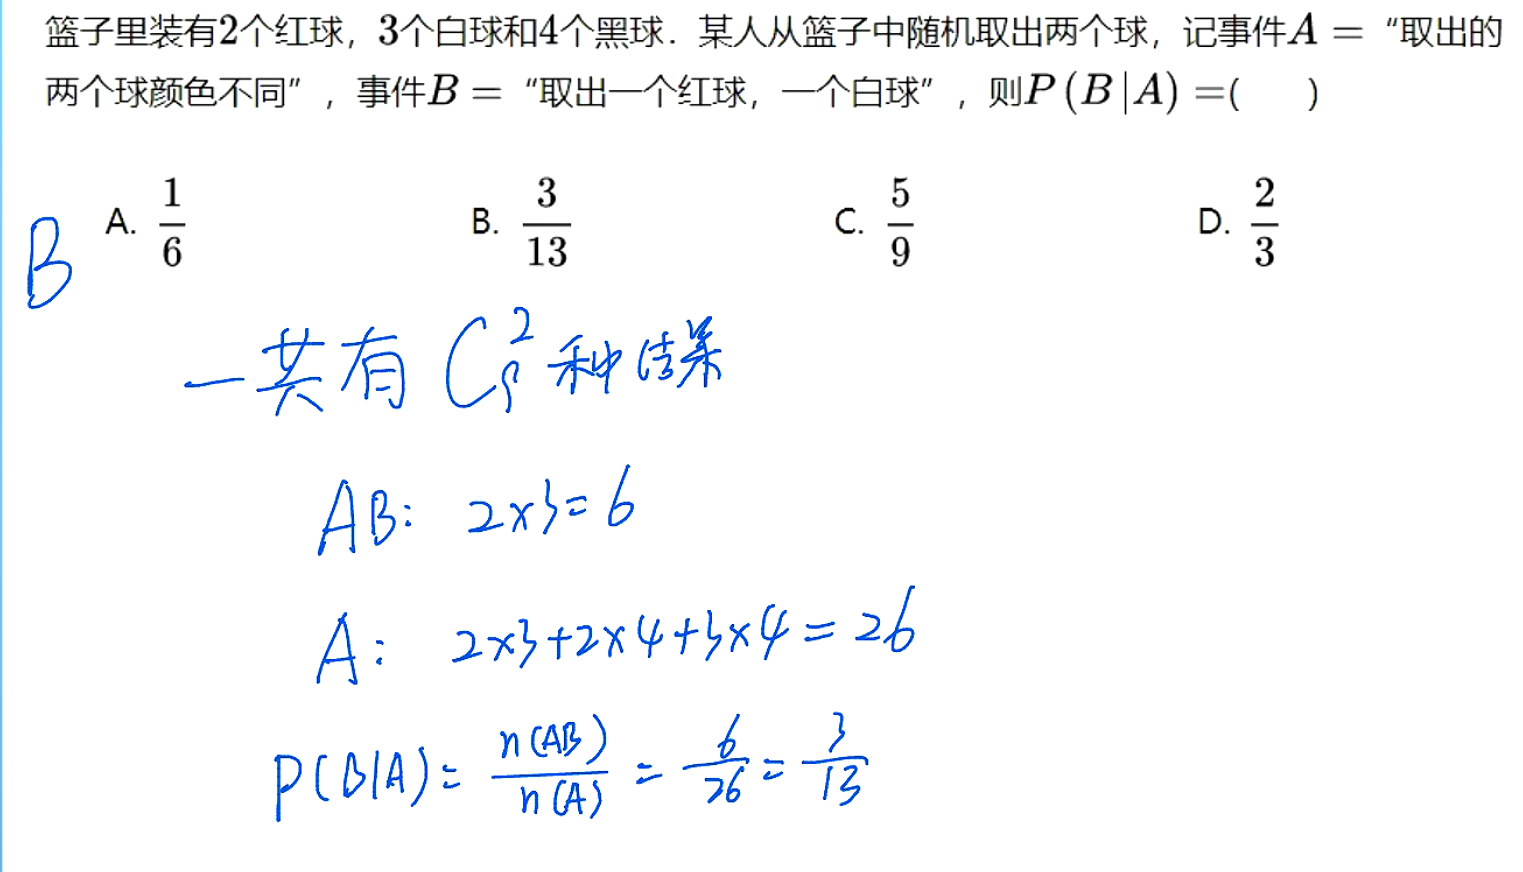 篮子里装有2个红球，3个白球和4个黑球．某人从篮子中随机取出两个球，记事件A = “取出的
两个球颜色不同”，事件B = “取出一个红球，一个白球”，则P(B|A) =(　　)
A. 1/6　B. 3/13　C. 5/9　D. 2/3
B
一共有 C₉² 种结果
AB: 2×3=6
A: 2×3+2×4+3×4=26
P(B|A)= n(AB)/n(A) = 6/26 = 3/13